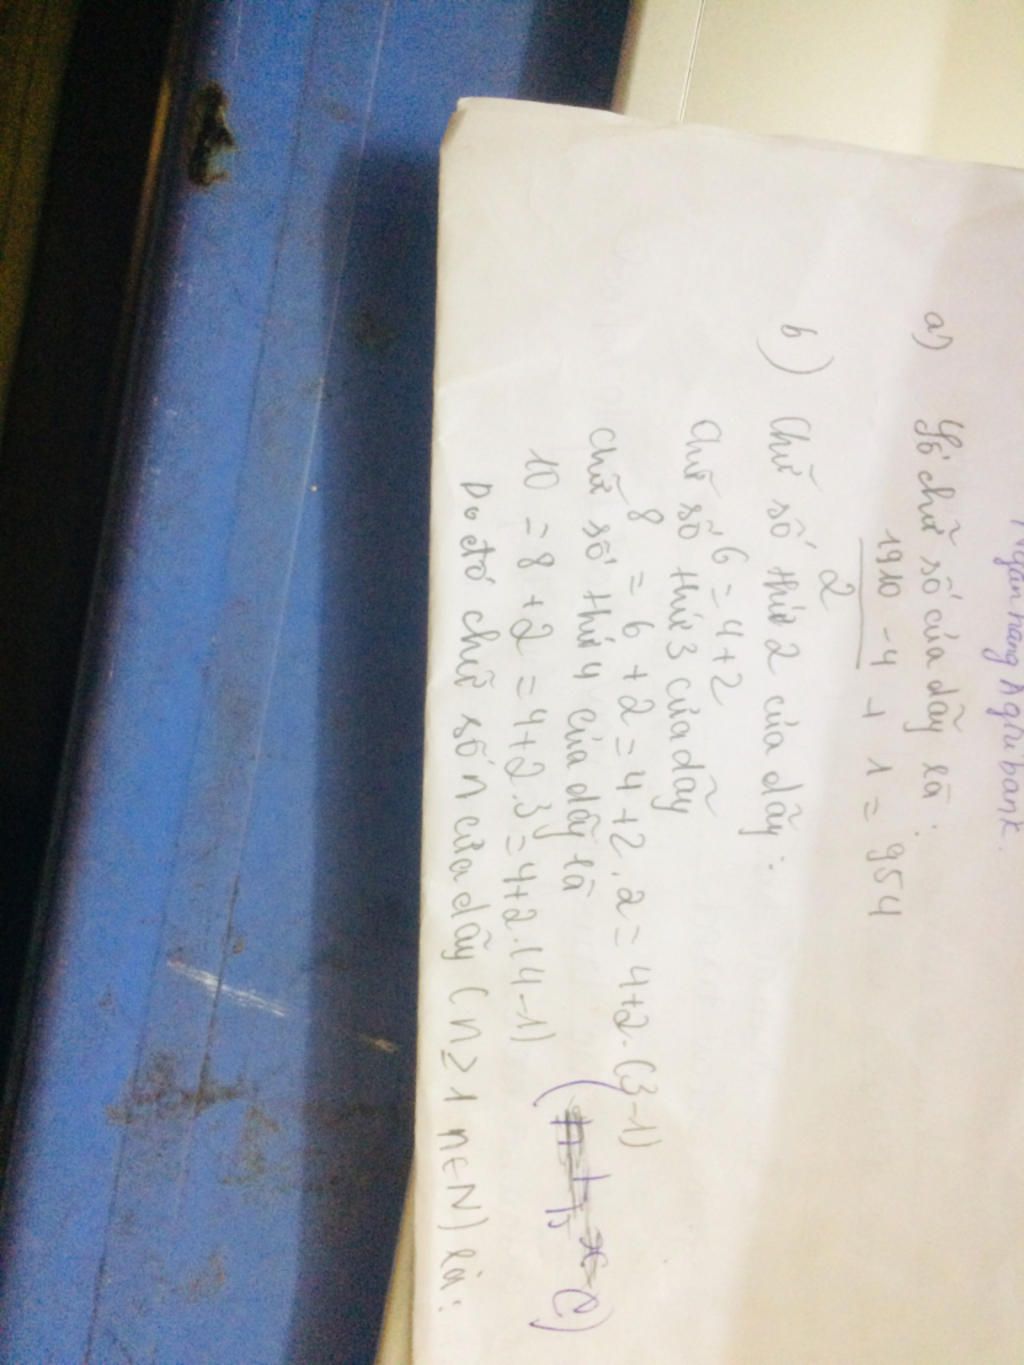 Ngân hàng Agribank.
a) Số chữ số của dãy là:
1910 - 4
2
+ 1 = 954
b) Chữ số thứ 2 của dãy:
6 = 4+2
chữ số thứ 3 của dãy
8 = 6 + 2 = 4 + 2.2 = 4+2.(3-1)
chữ số thứ 4 của dãy là
10 = 8 + 2 = 4+2.3 = 4+2.(4-1)
Do đó chữ số n của dãy (n ≥ 1 n ∈ N) là: